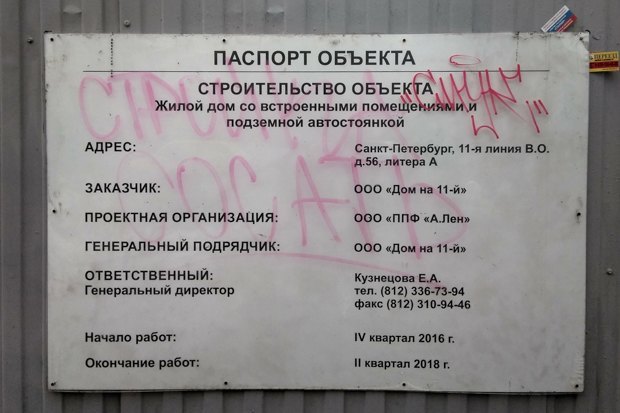 ПАСПОРТ ОБЪЕКТА
СТРОИТЕЛЬСТВО ОБЪЕКТА
Жилой дом со встроенными помещениями и
подземной автостоянкой
АДРЕС: Санкт-Петербург, 11-я линия В.О.
д.56, литера А
ЗАКАЗЧИК: ООО «Дом на 11-й»
ПРОЕКТНАЯ ОРГАНИЗАЦИЯ: ООО «ППФ «А.Лен»
ГЕНЕРАЛЬНЫЙ ПОДРЯДЧИК: ООО «Дом на 11-й»
ОТВЕТСТВЕННЫЙ: Кузнецова Е.А.
Генеральный директор тел. (812) 336-73-94
факс (812) 310-94-46
Начало работ: IV квартал 2016 г.
Окончание работ: II квартал 2018 г.
СОСАТЬ